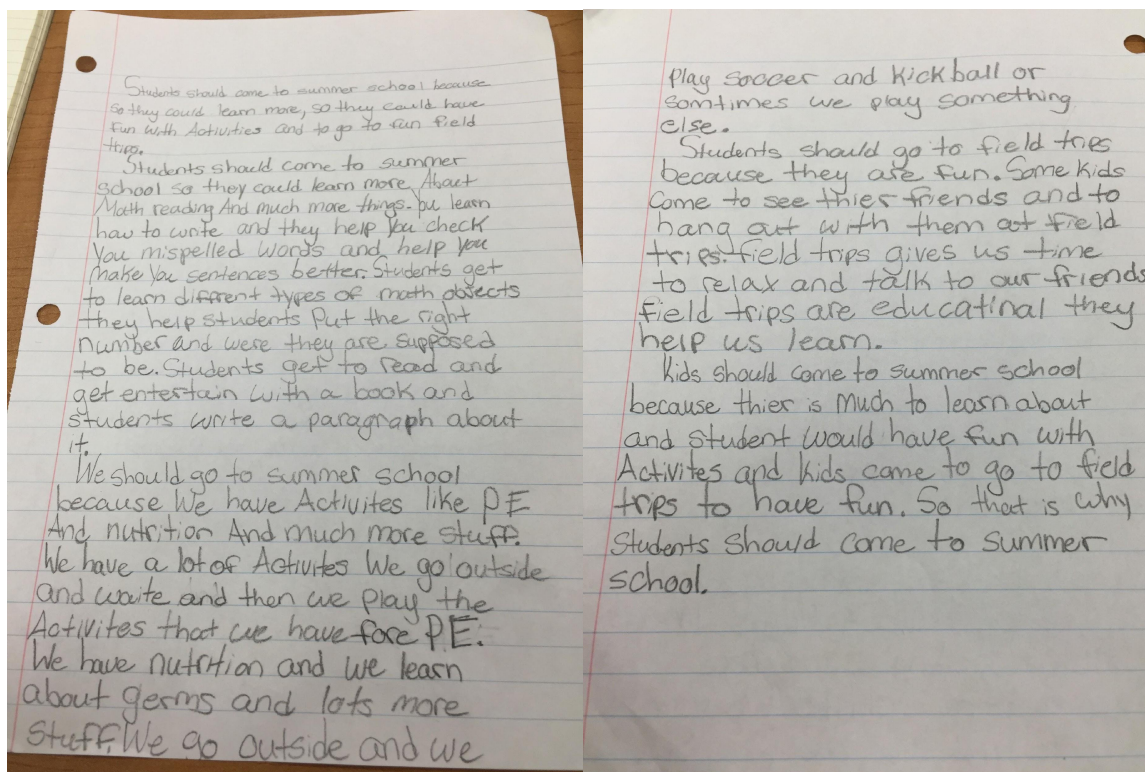 Students should come to summer school because
so they could learn more, so they could have
fun with Activities and to go to fun field
trips.
Students should come to summer
school so they could learn more About
Math reading And much more things. you learn
how to write and they help you check
you mispelled words and help you
make you sentences better. Students get
to learn different types of math objects
they help students Put the right
number and were they are supposed
to be. Students get to read and
get entertain with a book and
students write a paragraph about
it.
We should go to summer school
because We have Activites like PE
And nutrition And much more stuff.
We have a lot of Activites We go outside
and waite and then we play the
Activites that we have fore PE.
We have nutrition and we learn
about germs and lots more
stuff. We go outside and we
Play soccer and kickball or
somtimes we play something
else.
Students should go to field trips
because they are fun. Some kids
come to see thier friends and to
hang out with them at field
trips. field trips gives us time
to relax and talk to our friends
field trips are educatinal they
help us learn.
Kids should come to summer school
because thier is much to learn about
and student would have fun with
Activites and kids come to go to field
trips to have fun. So that is why
students should come to summer
school.